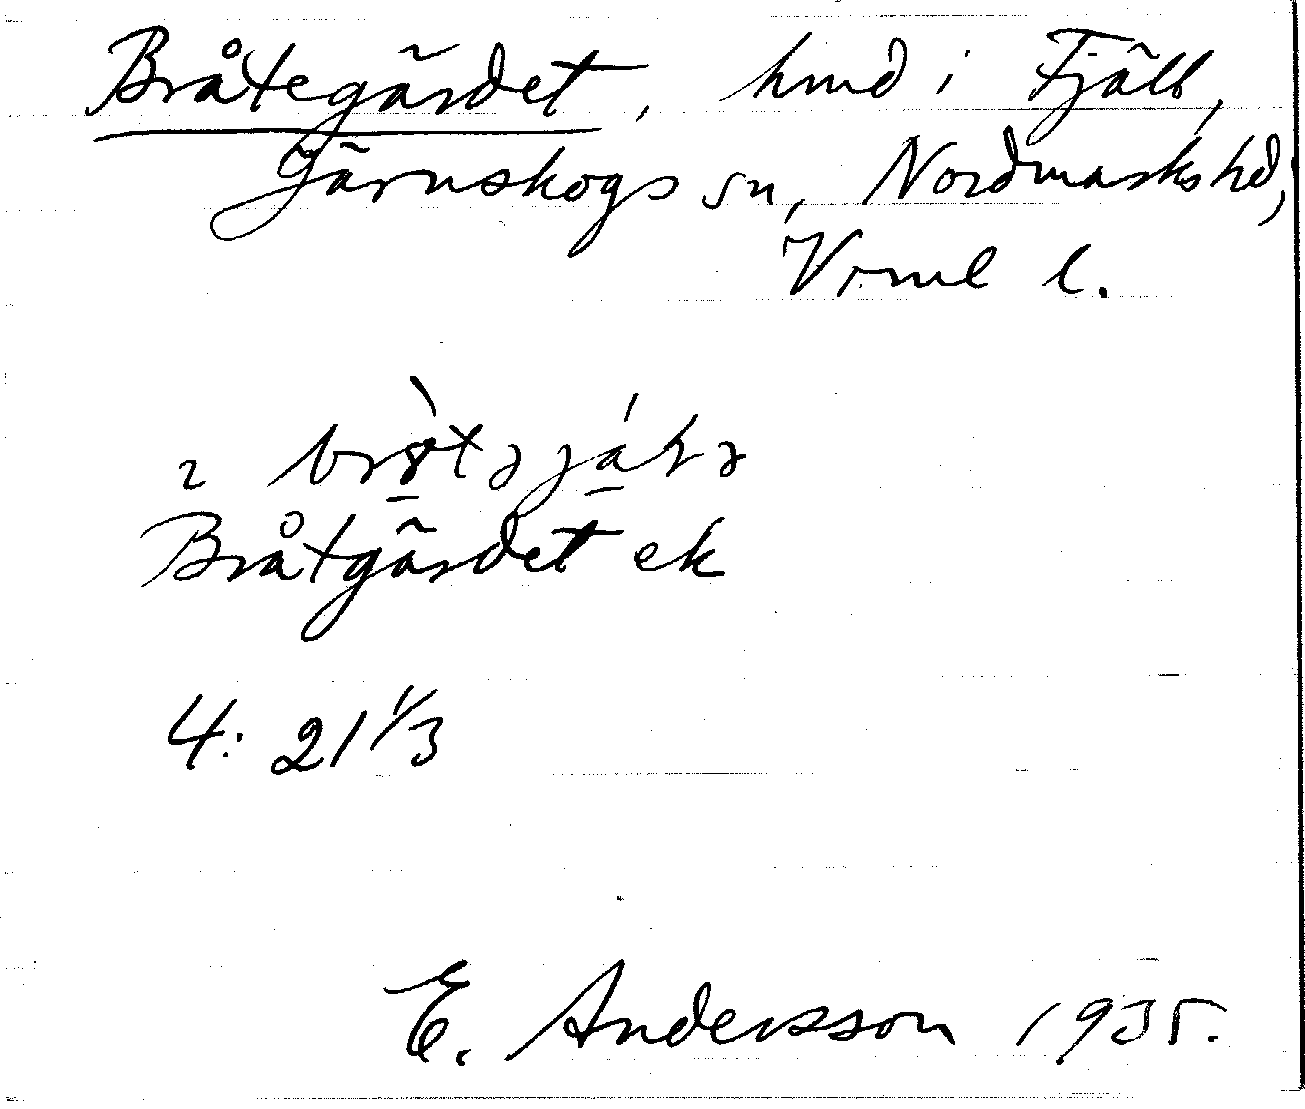 Bråtegärdet, hmd i Fjäll,
Järnskogs sn, Nordmarks hd,
Vrml l.
Bråtgärdet ek
4: 21 1/3
E. Andersson 1935.